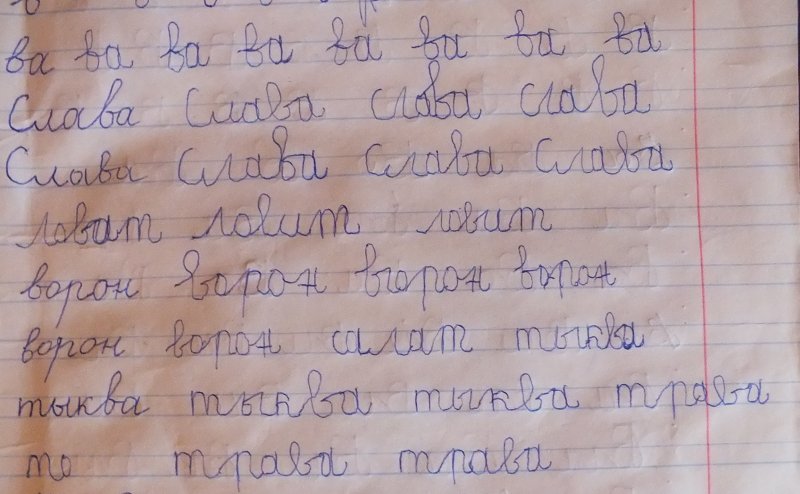 ва ва ва ва ва ва ва ва
Слава Слава слова слава
Слава Слава Слава Слава
ловит ловит ловит
ворон ворон ворон ворон
ворон ворон салат тыква
тыква тыква тыква трава
то трава трава